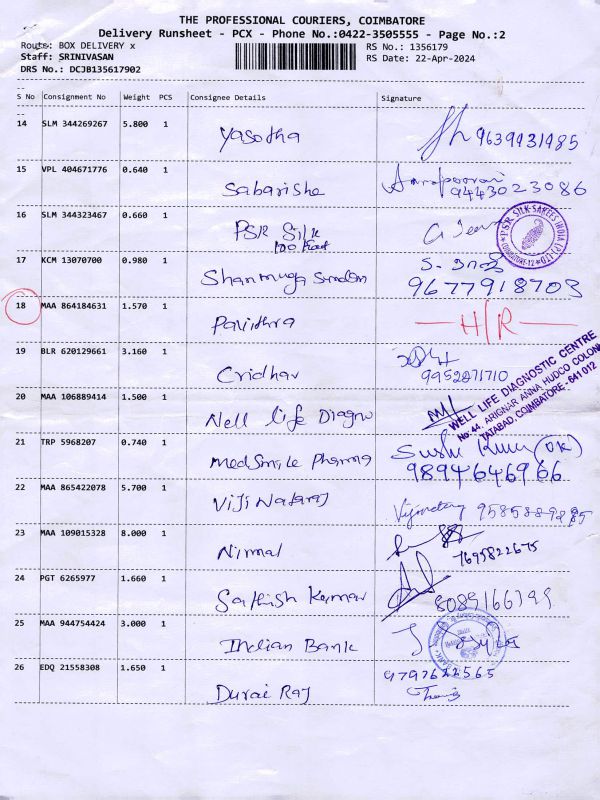 THE PROFESSIONAL COURIERS, COIMBATORE
Delivery Runsheet - PCX - Phone No.:0422-3505555 - Page No.:2
Route: BOX DELIVERY x
RS No.: 1356179
Staff: SRINIVASAN
RS Date: 22-Apr-2024
DRS No.: DCJB135617902
S No Consignment No Weight PCS Consignee Details Signature
14 SLM 344269267 5.800 1 Yasotha 9639931985
15 VPL 404671776 0.640 1 Sabarishe
9443023086
16 SLM 344323467 0.660 1 PSR Silk
100 Feet
PSR SILK SAREES INDIA
17 KCM 13070700 0.980 1 Shanmuga Sundom
9677918703
18 MAA 864184631 1.570 1 Pavithra H/R
19 BLR 620129661 3.160 1 Cridhar
9952871710
20 MAA 106889414 1.500 1 Nell life Diagno
WELL LIFE DIAGNOSTIC CENTRE
No.44, ARIGNAR ANNA HUDCO COLONY
TATABAD, COIMBATORE - 641 012
21 TRP 5968207 0.740 1 MedSmile Pharma
9894646966
22 MAA 865422078 5.700 1 Viji Nataraj 9585889885
23 MAA 109015328 8.000 1 Nirmal
7695822675
24 PGT 6265977 1.660 1 Sathish Kumar 8089166799
25 MAA 944754424 3.000 1 Indian Bank
26 EDQ 21558308 1.650 1 Durai Raj 9797622565